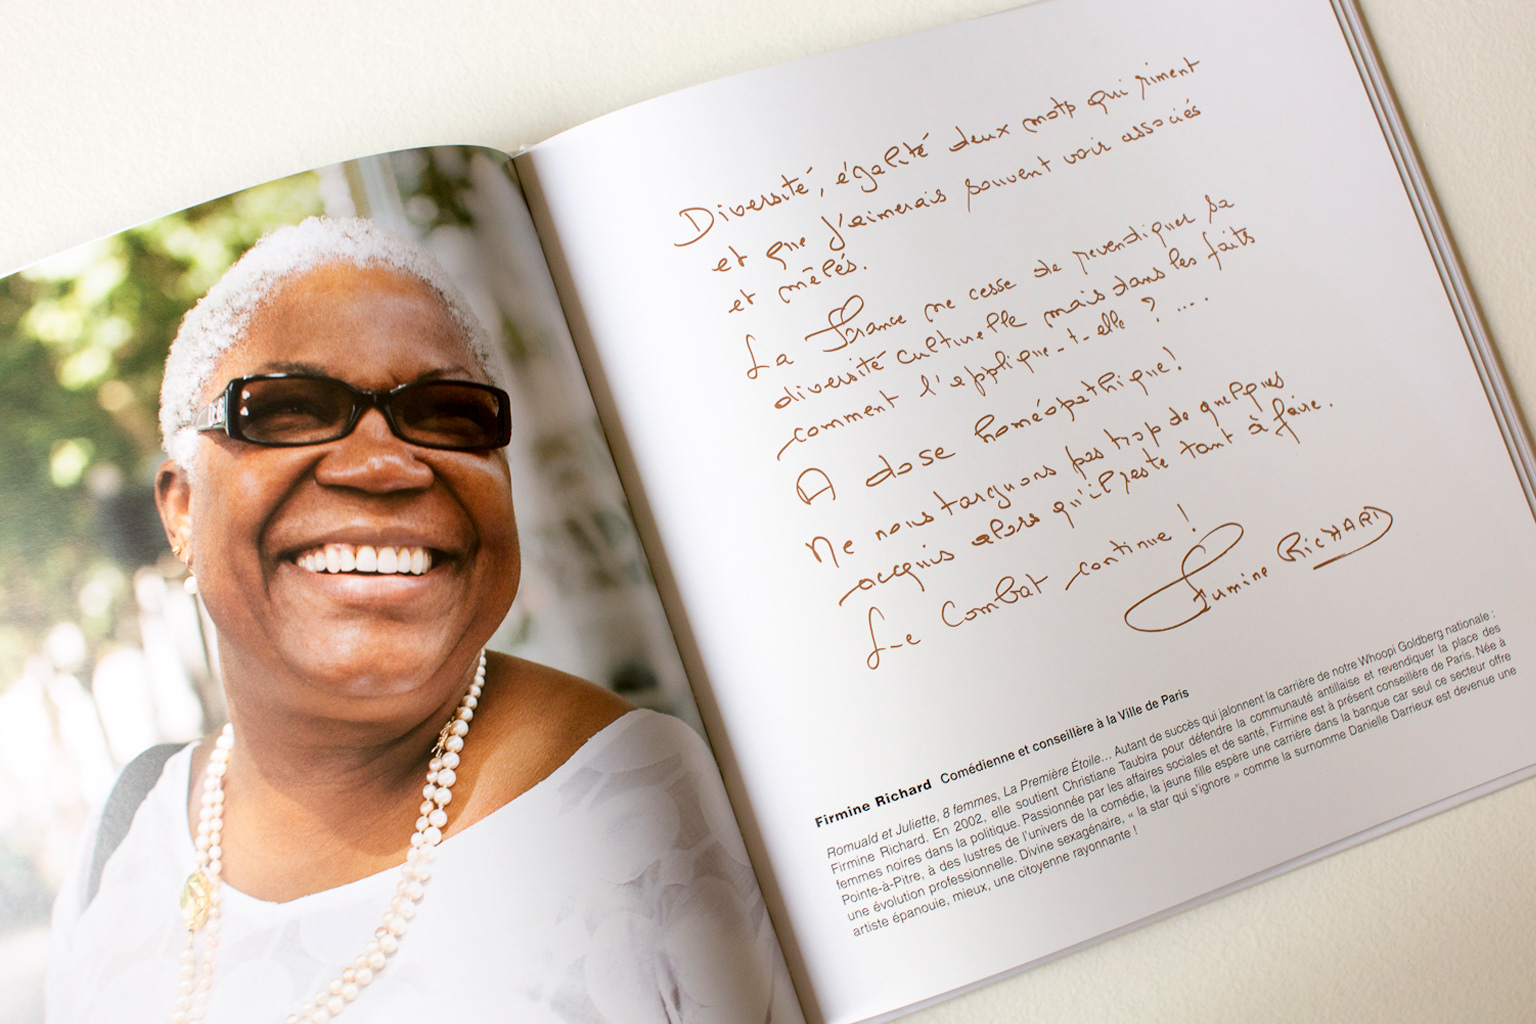 Diversité, égalité deux mots qui riment
et que j'aimerais souvent voir associés
et mêlés.
La France ne cesse de revendiquer sa
diversité culturelle mais dans les faits
comment l'applique-t-elle ? ....
A dose homéopathique !
Ne nous targuons pas trop de quelques
acquis alors qu'il reste tant à faire.
Le Combat continue !
Firmine RICHARD
Firmine Richard Comédienne et conseillère à la Ville de Paris
Romuald et Juliette, 8 femmes, La Première Étoile... Autant de succès qui jalonnent la carrière de notre Whoopi Goldberg nationale :
Firmine Richard. En 2002, elle soutient Christiane Taubira pour défendre la communauté antillaise et revendiquer la place des
femmes noires dans la politique. Passionnée par les affaires sociales et de santé, Firmine est à présent conseillère de Paris. Née à
Pointe-à-Pitre, à des lustres de l'univers de la comédie, la jeune fille espère une carrière dans la banque car seul ce secteur offre
une évolution professionnelle. Divine sexagénaire, « la star qui s'ignore » comme la surnomme Danielle Darrieux est devenue une
artiste épanouie, mieux, une citoyenne rayonnante !